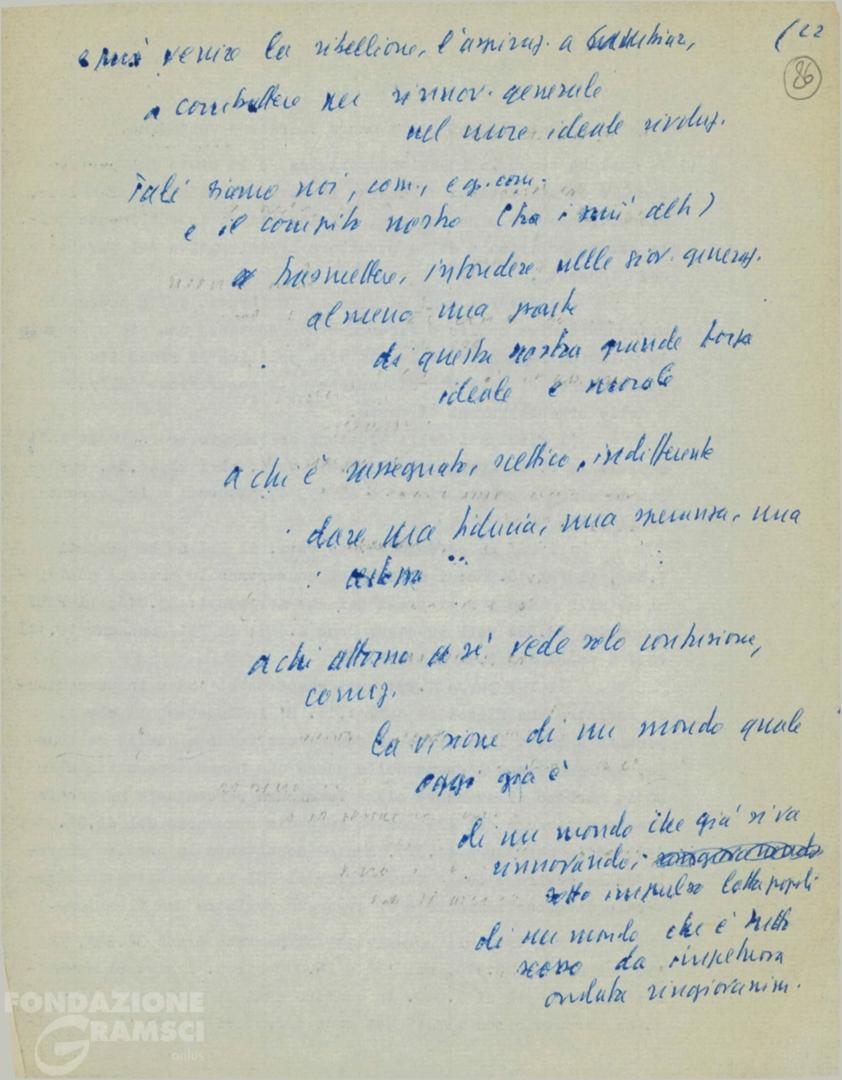 e può venire la ribellione, l'aspiraz. a cambiar,
(22
86
a combattere nei rinnov. generale
nel more ideale rivoluz.
Tali siamo noi, com., e gi. com.
e il compito nostro (tra i più alti)
a trasmettere, infondere nelle giov. generaz.
almeno una parte
di questa nostra grande forza
ideale e morale
a chi è rassegnato, scettico, indifferente
dare una fiducia, una speranza, una
a chi attorno a sé vede solo confusione,
corruz.
la visione di un mondo quale
oggi già è
di un mondo che già si va
rinnovando,
sotto impulso lotta popoli
di un mondo che è tutto
scosso da impetuosa
ondata ringiovanim.
FONDAZIONE
GRAMSCI
onlus